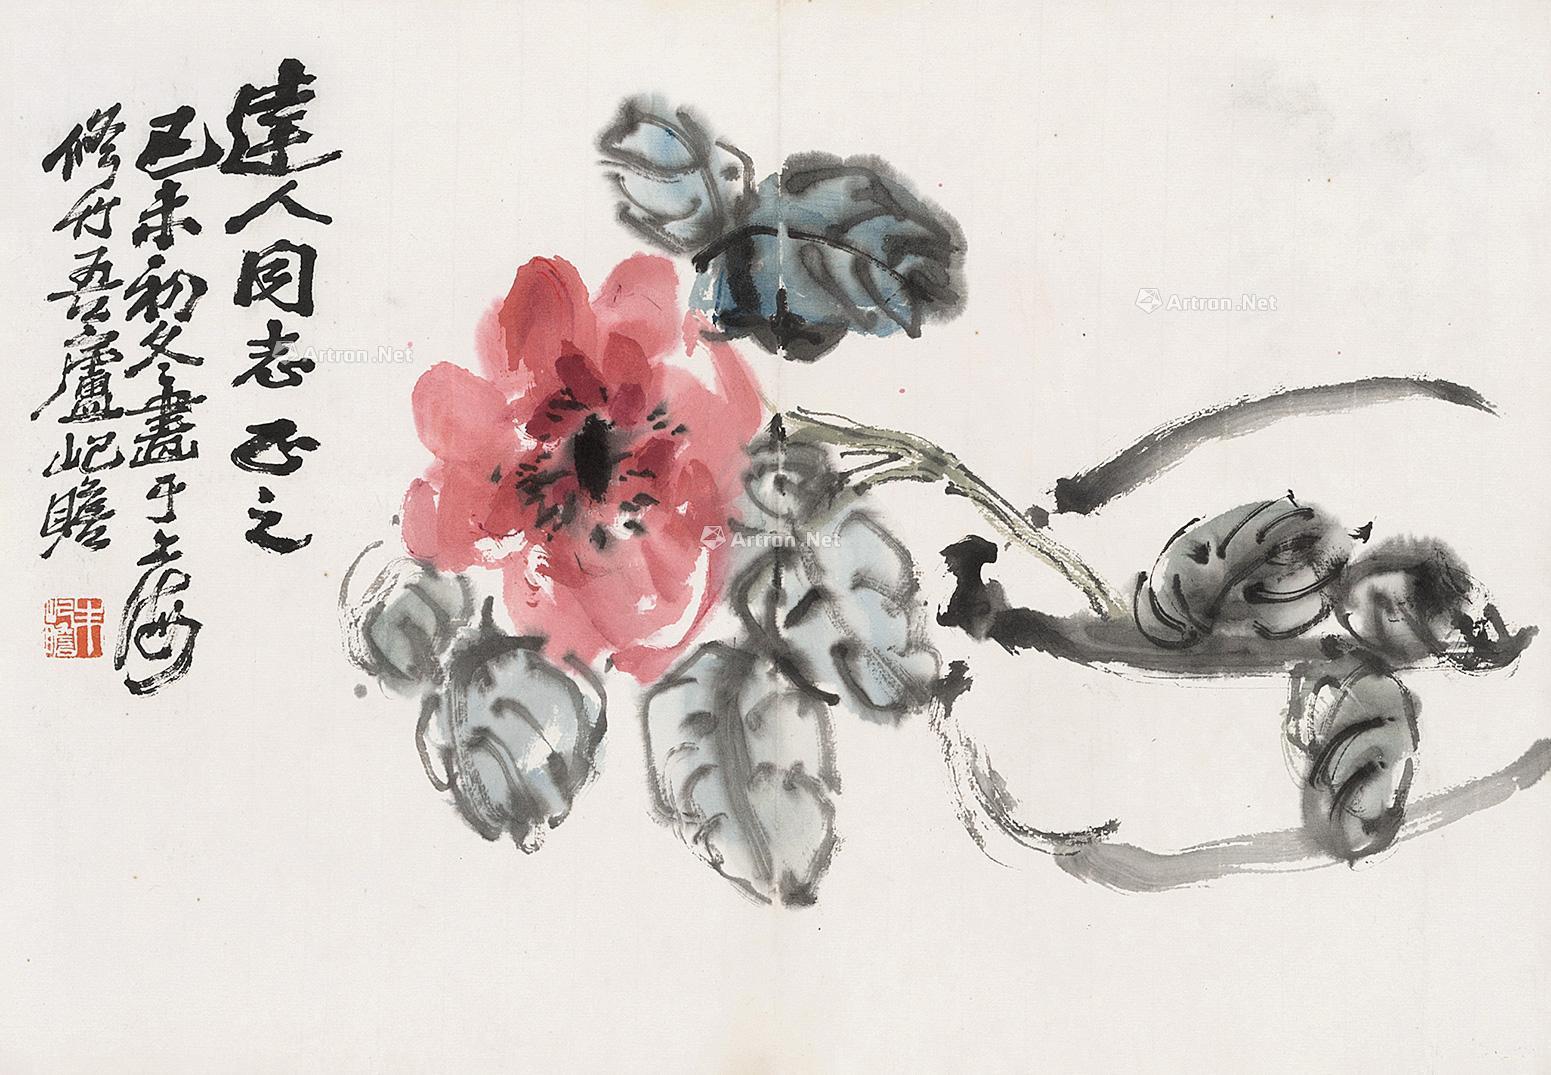 達人同志正之
己未初冬畫于上海
修竹吾廬屺瞻
朱屺瞻
Artron.Net
Artron.Net
Artron.Net